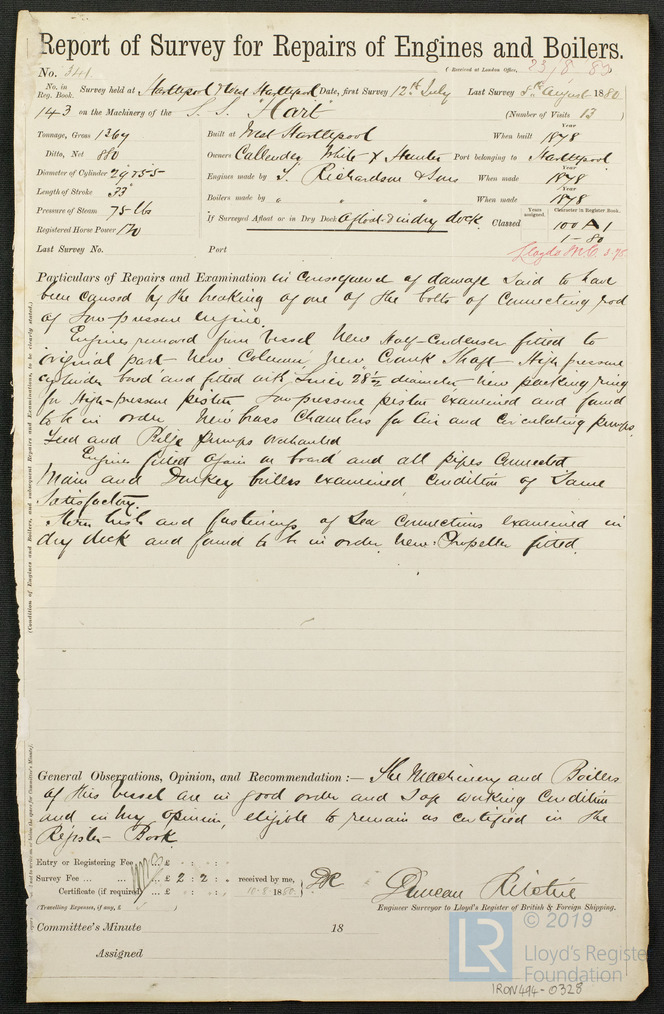 Report of Survey for Repairs of Engines and Boilers.
No. 341. (Received at London Office, 23/8/80
No. in Reg. Book. Survey held at Hartlepool & West Hartlepool Date, first Survey 12th July Last Survey 5th August 1880
143 on the Machinery of the S.S. "Hart" (Number of Visits 13)
Tonnage, Gross 1369 Built at West Hartlepool When built Year 1878
Ditto, Net 880 Owners Callender White & Hunter Port belonging to Hartlepool
Diameter of Cylinder 29 & 55 Engines made by T. Richardson & Sons When made Year 1878
Length of Stroke 33" Boilers made by " " " When made Year 1878
Pressure of Steam 75 lbs If Surveyed Afloat or in Dry Dock Afloat & in dry dock. Classed Years assigned. Character in Register Book. 100 A 1
Registered Horse Power 170 1-80
Last Survey No. Port Lloyds M.C.
Particulars of Repairs and Examination in consequence of damage said to have
been caused by the breaking of one of the bolts of connecting rod
of low-pressure engine.
Engines removed from vessel New half-condenser fitted to
original part New Column, New Crank Shaft High pressure
cylinder bored and fitted with Liner 28 1/2 diameter, new packing ring
for High-pressure piston Low pressure piston examined and found
to be in order. New brass chambers for air and circulating pumps.
Feed and Bilge pumps overhauled
Engines fitted again on board and all pipes connected
Main and Donkey boilers examined, condition of same
satisfactory.
Stern bush and fastenings of sea connections examined in
dry dock and found to be in order. New Propeller fitted.
General Observations, Opinion, and Recommendation :— The Machinery and Boilers
of this vessel are in good order and safe working condition
and in my opinion, eligible to remain as certified in the
Register-Book.
Entry or Registering Fee ... £ : :
Survey Fee ... ... £ 2 : 2 : " received by me, DR
Certificate (if required) ... £ : : 10.8.1880
(Travelling Expenses, if any, £ )
Duncan Ritchie
Engineer Surveyor to Lloyd's Register of British & Foreign Shipping.
Committee's Minute 18
Assigned
(Condition of Engines and Boilers, and subsequent Repairs and Examinations, to be clearly stated.)
LR © 2019
Lloyd's Register
Foundation
IRON494-0328